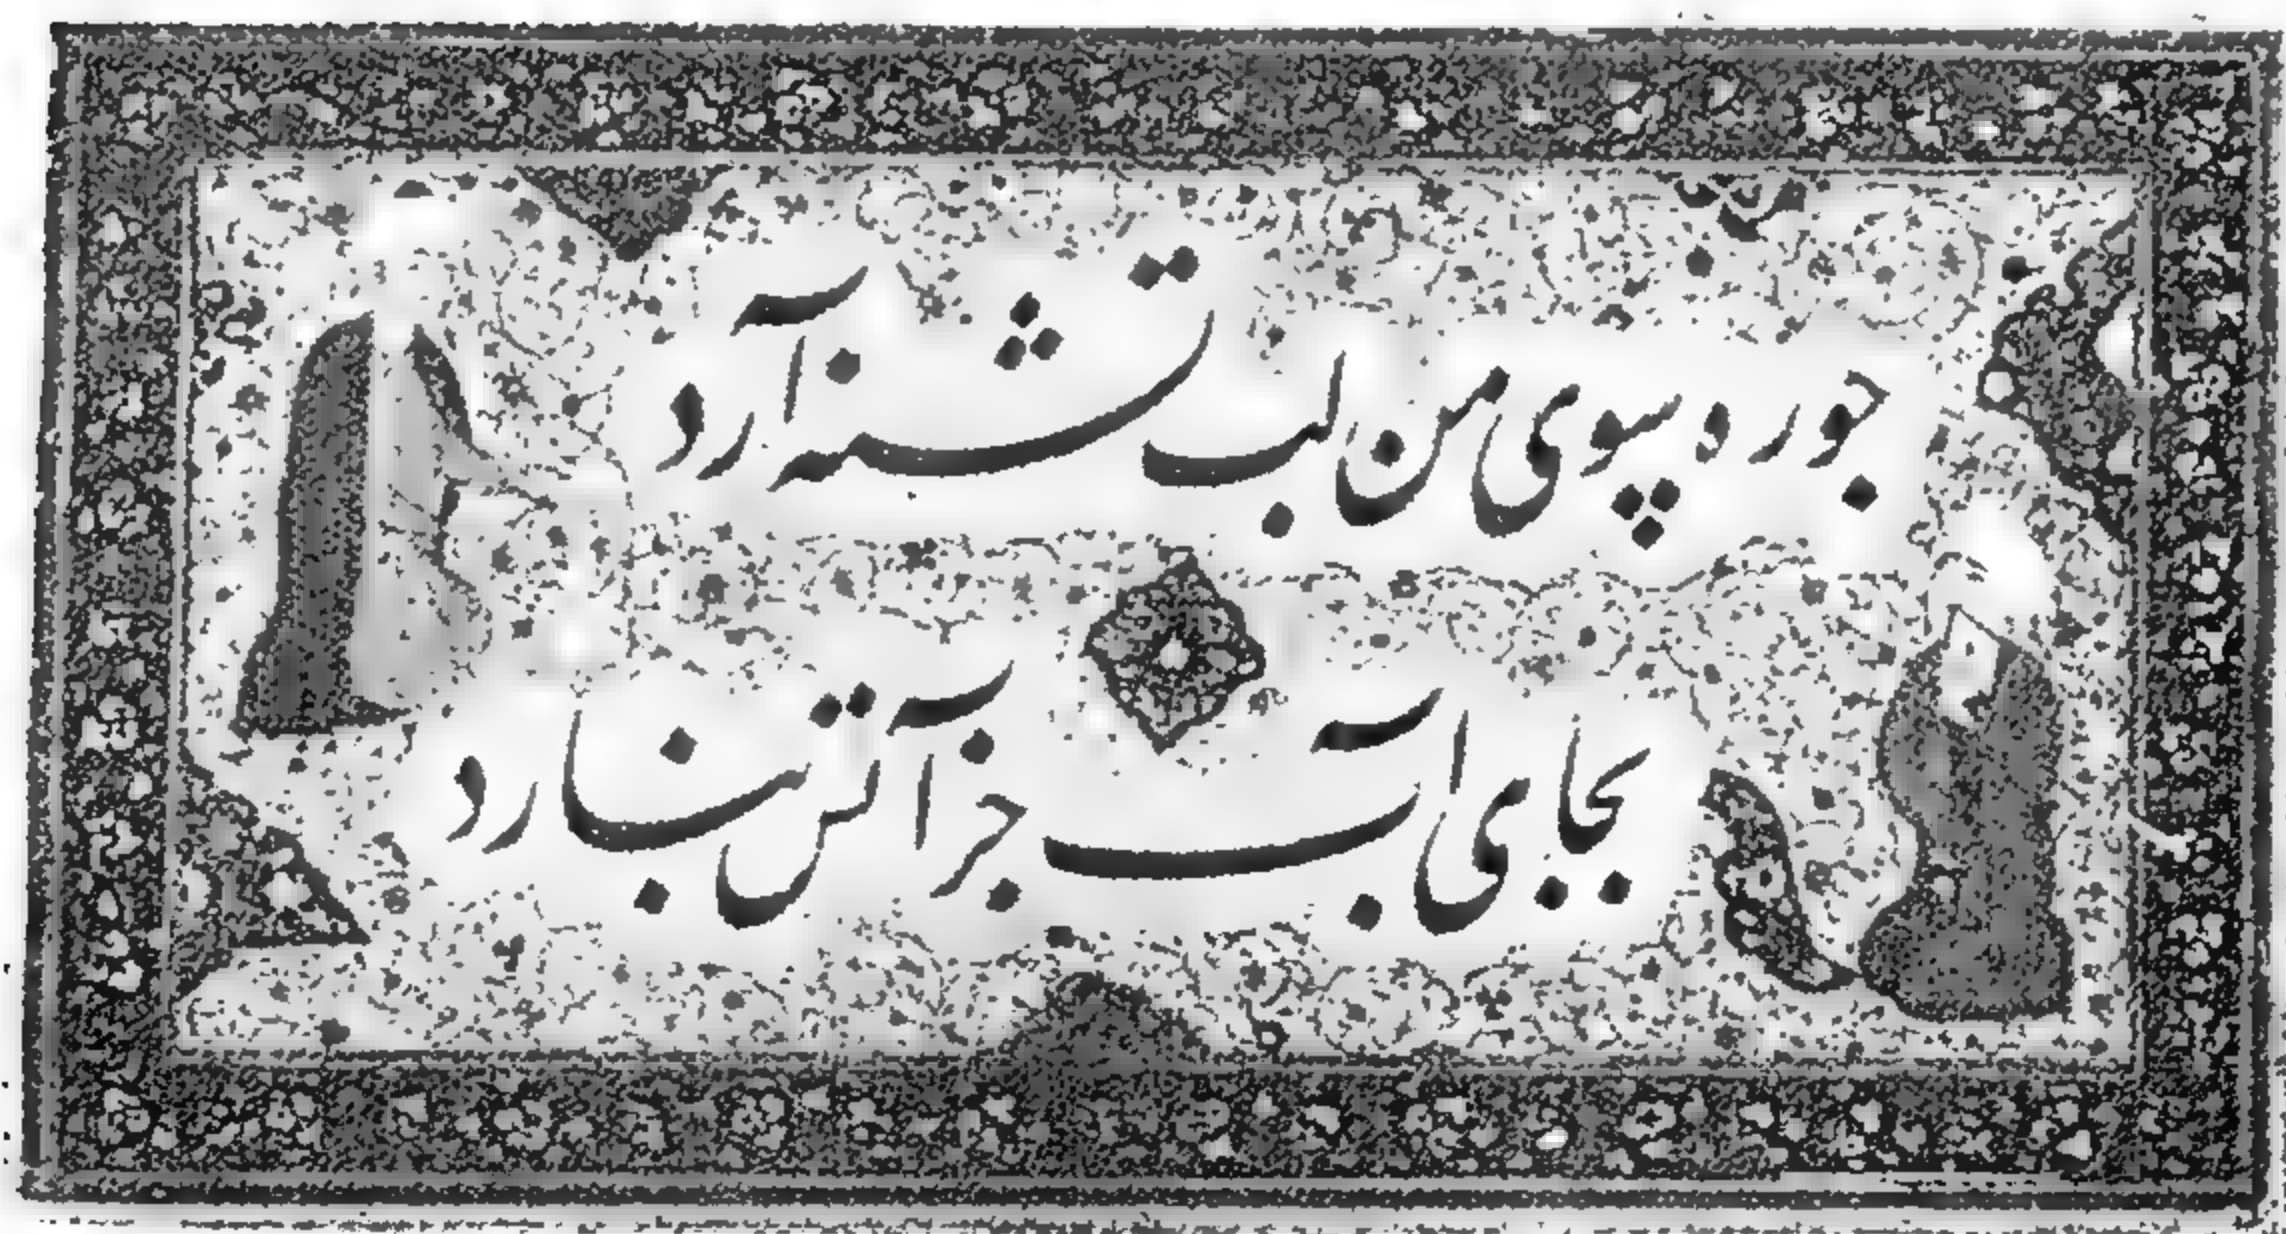 جو رو بسوی من لب تشنه آرد
بجای آب جز آتش نبارد